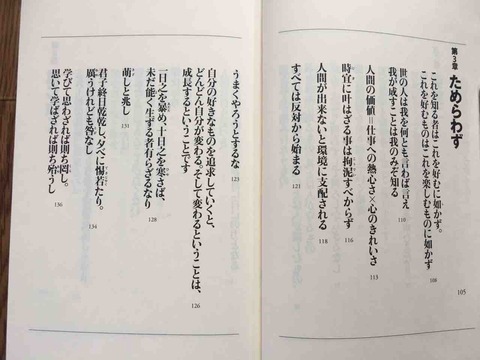 第3章 ためらわず
これを知る者はこれを好むに如かず。
これを好むものはこれを楽しむものに如かず
108
世の人は我を何とも言わば言え
我が成すことは我のみぞ知る
110
人間の価値=仕事への熱心さ×心のきれいさ
113
時宜に叶はざる事は拘泥すべからず
116
人間が出来ないと環境に支配される
118
すべては反対から始まる
121
105
うまくやろうとするな
123
自分の好きなものを追求していくと、
どんどん自分が変わる。そして変わるということは、
成長するということです
126
一日之を暴め、十日之を寒さば、
未だ能く生ずる者有らざるなり
128
萌しと兆し
131
君子終日乾乾し、夕べに惕若たり。
厲うけれども咎なし
134
学びて思わざれば則ち罔し。
思いて学ばざれば則ち殆うし
136